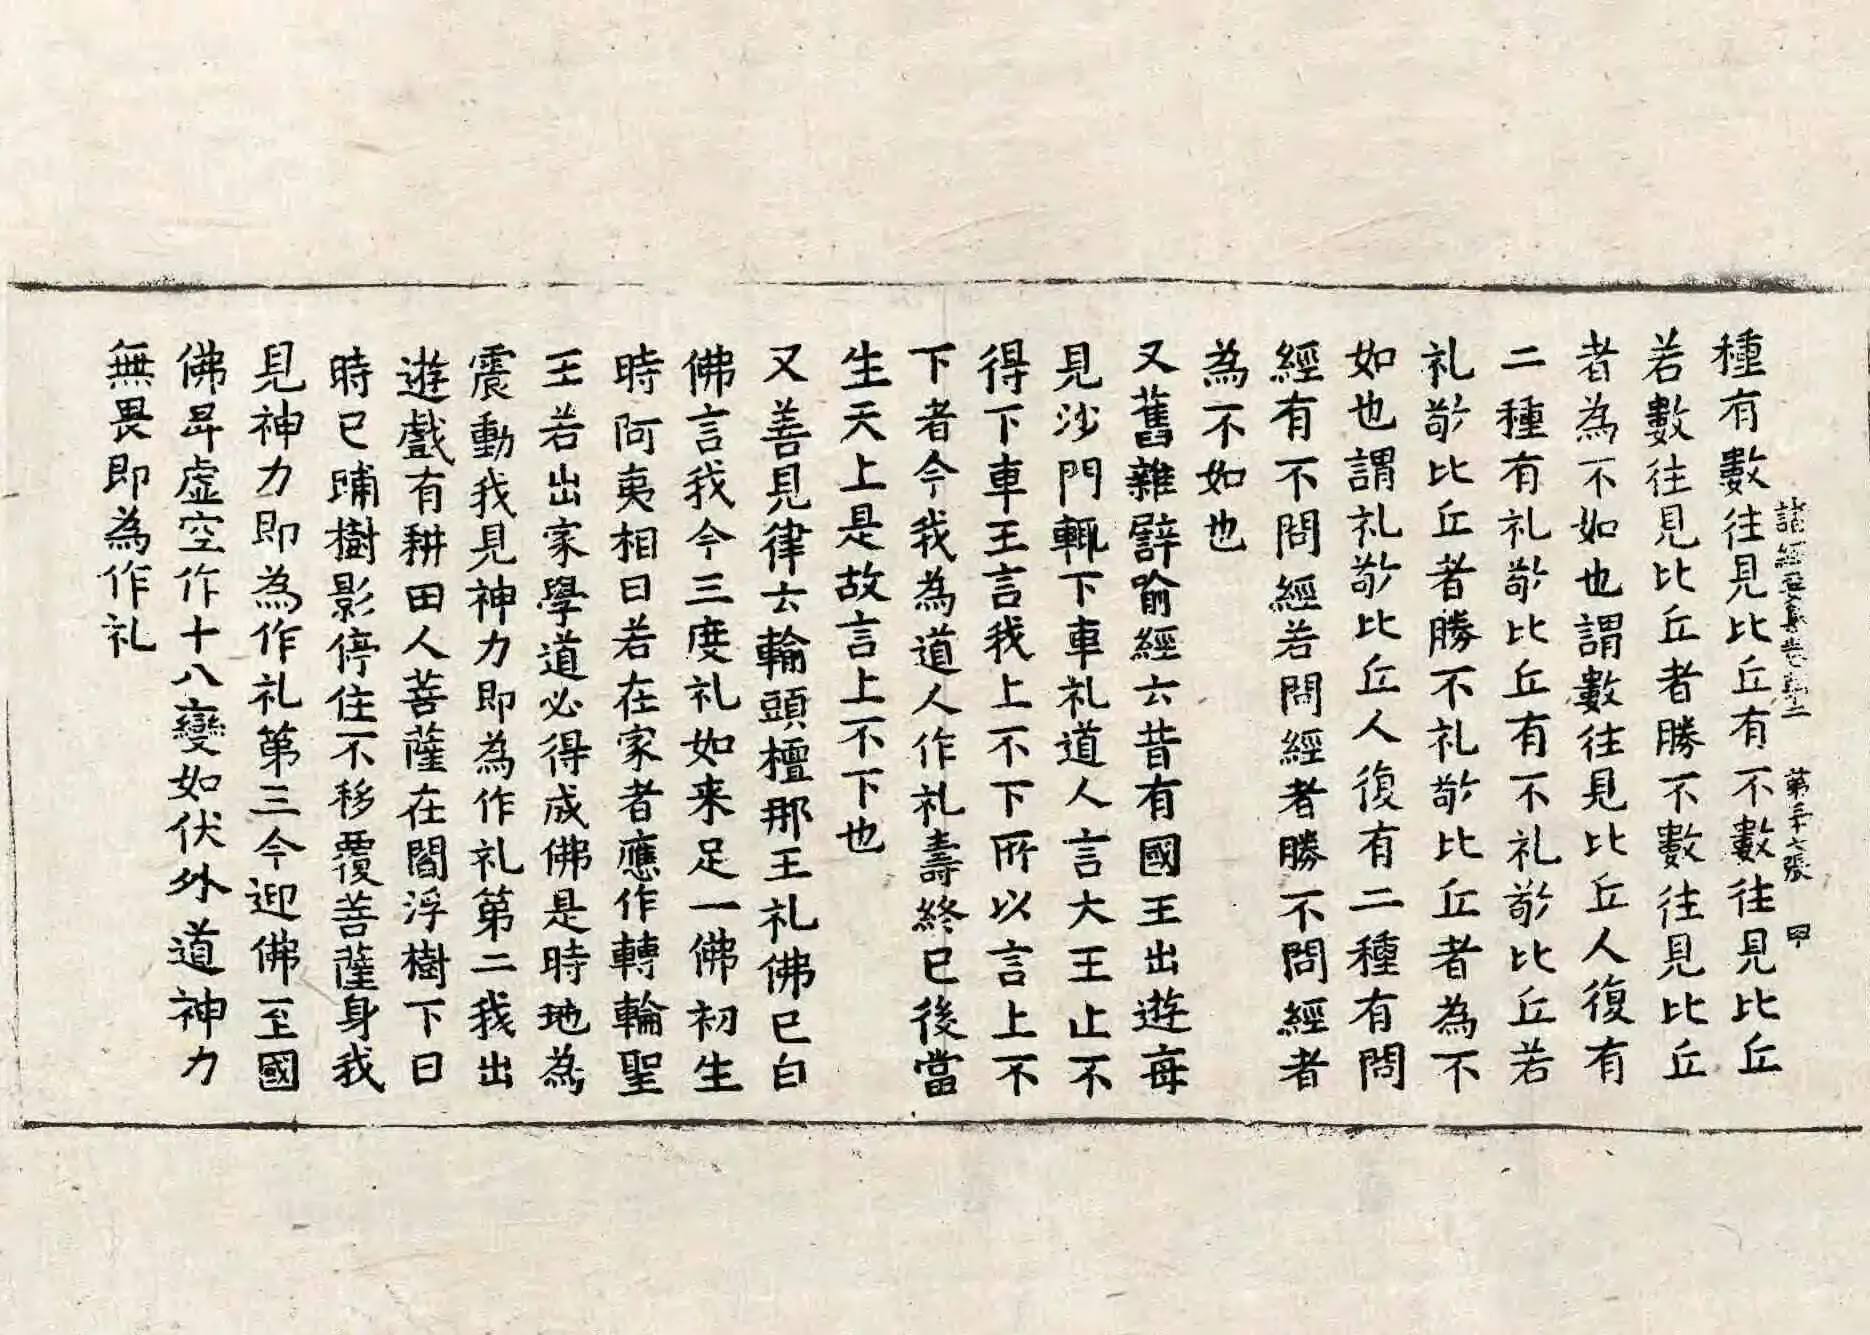 諸經要集卷第二 第二十七張 甲
種有數往見比丘有不數往見比丘
若數往見比丘者勝不數往見比丘
者為不如也謂數往見比丘人復有
二種有礼敬比丘有不礼敬比丘若
礼敬比丘者勝不礼敬比丘者為不
如也謂礼敬比丘人復有二種有問
經有不問經若問經者勝不問經者
為不如也
又舊雜譬喻經云昔有國王出遊每
見沙門輒下車礼道人言大王止不
得下車王言我上不下所以言上不
下者今我為道人作礼壽終已後當
生天上是故言上不下也
又善見律云輪頭檀那王礼佛已白
佛言我今三度礼如来足一佛初生
時阿夷相曰若在家者應作轉輪聖
王若出家學道必得成佛是時地為
震動我見神力即為作礼第二我出
遊戲有耕田人菩薩在閻浮樹下日
時已晡樹影停住不移覆菩薩身我
見神力即為作礼第三今迎佛至國
佛昇虚空作十八變如伏外道神力
無畏即為作礼